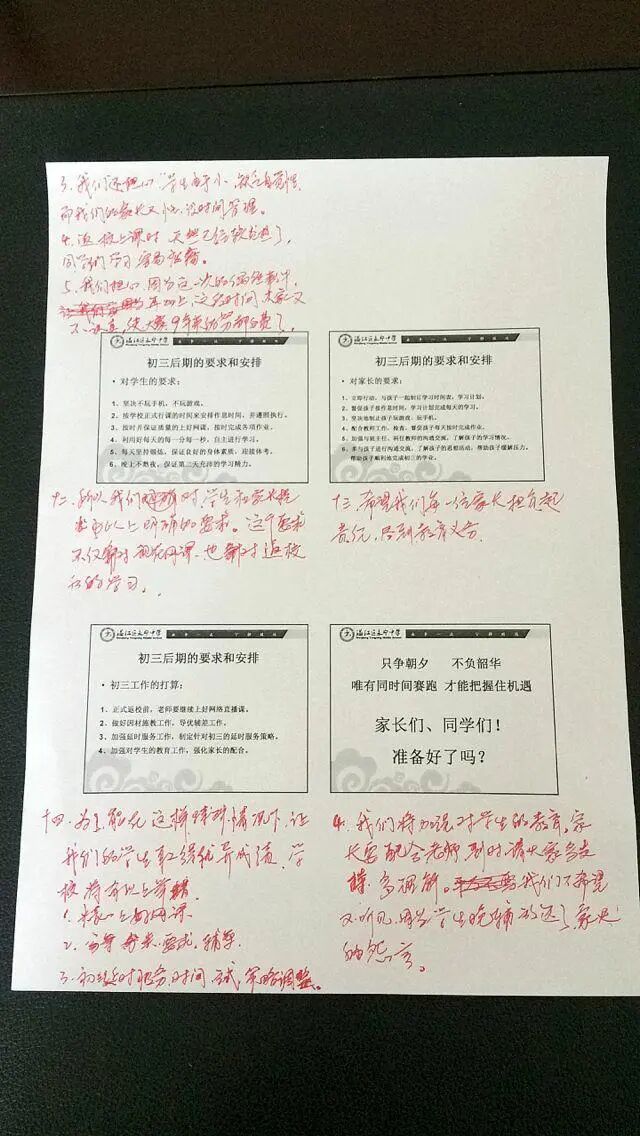 3. 我们还担心 学生年小, 缺乏自觉性,
而我们的家长又忙, 没时间管理。
4. 返校上课时 天热已经较
同学们学习容易
5. 我们担心, 因为这一次的
再加上, 这段时间大家又
不认真, 使大家9年来的努力都白费了。
温江区永宁中学
初三后期的要求和安排
• 对学生的要求：
1、坚决不玩手机，不玩游戏。
2、按学校正式行课的时间来安排作息时间，并遵照执行。
3、按时并保证质量的上好网课，按时完成各项作业。
4、利用好每天的每一分每一秒，自主进行学习。
5、每天坚持锻炼，保证良好的身体素质，迎接体考。
6、晚上不熬夜，保证第二天充沛的学习精力。
初三后期的要求和安排
• 对家长的要求：
1、立即行动，与孩子一起制订学习时间表，学习计划。
2、督促孩子作息时间，学习计划完成每天的学习。
3、坚决地制止孩子玩游戏、玩手机。
4、配合教师工作，检查、督促孩子每天按时完成作业。
5、加强与班主任、科任教师的沟通交流，了解孩子的学习情况。
6、多与孩子进行沟通交流，了解孩子的思想活动，帮助孩子缓解压力。
帮助孩子顺利地完成初三的学业。
十二、所以我们 对 学生和家长提
出了以上明确的要求。这个要求
不仅针对现在网课, 也针对返校
后的学习。
十三、希望我们每一位家长担负起
责任, 尽到教育义务。
初三后期的要求和安排
• 初三工作的打算：
1、正式返校前，老师要继续上好网络直播课。
2、做好因材施教工作，导优辅差工作。
3、加强延时服务工作，制定针对初三的延时服务策略。
4、加强对学生的教育工作，强化家长的配合。
只争朝夕 不负韶华
唯有同时间赛跑 才能把握住机遇
家长们、同学们！
准备好了吗？
十四、为了能在这样特殊情况下, 让
我们的学生取得优异成绩, 学
校将有以上
1. 上好网课
2. 辅导
3. 初三延时服务, 时间, 策略调整。
4. 我们将加强对学生的教育, 家
长要配合老师, 到时请大家多支
持、多理解。 我们不希望
又听见, 因为学生晚辅
的怨言。